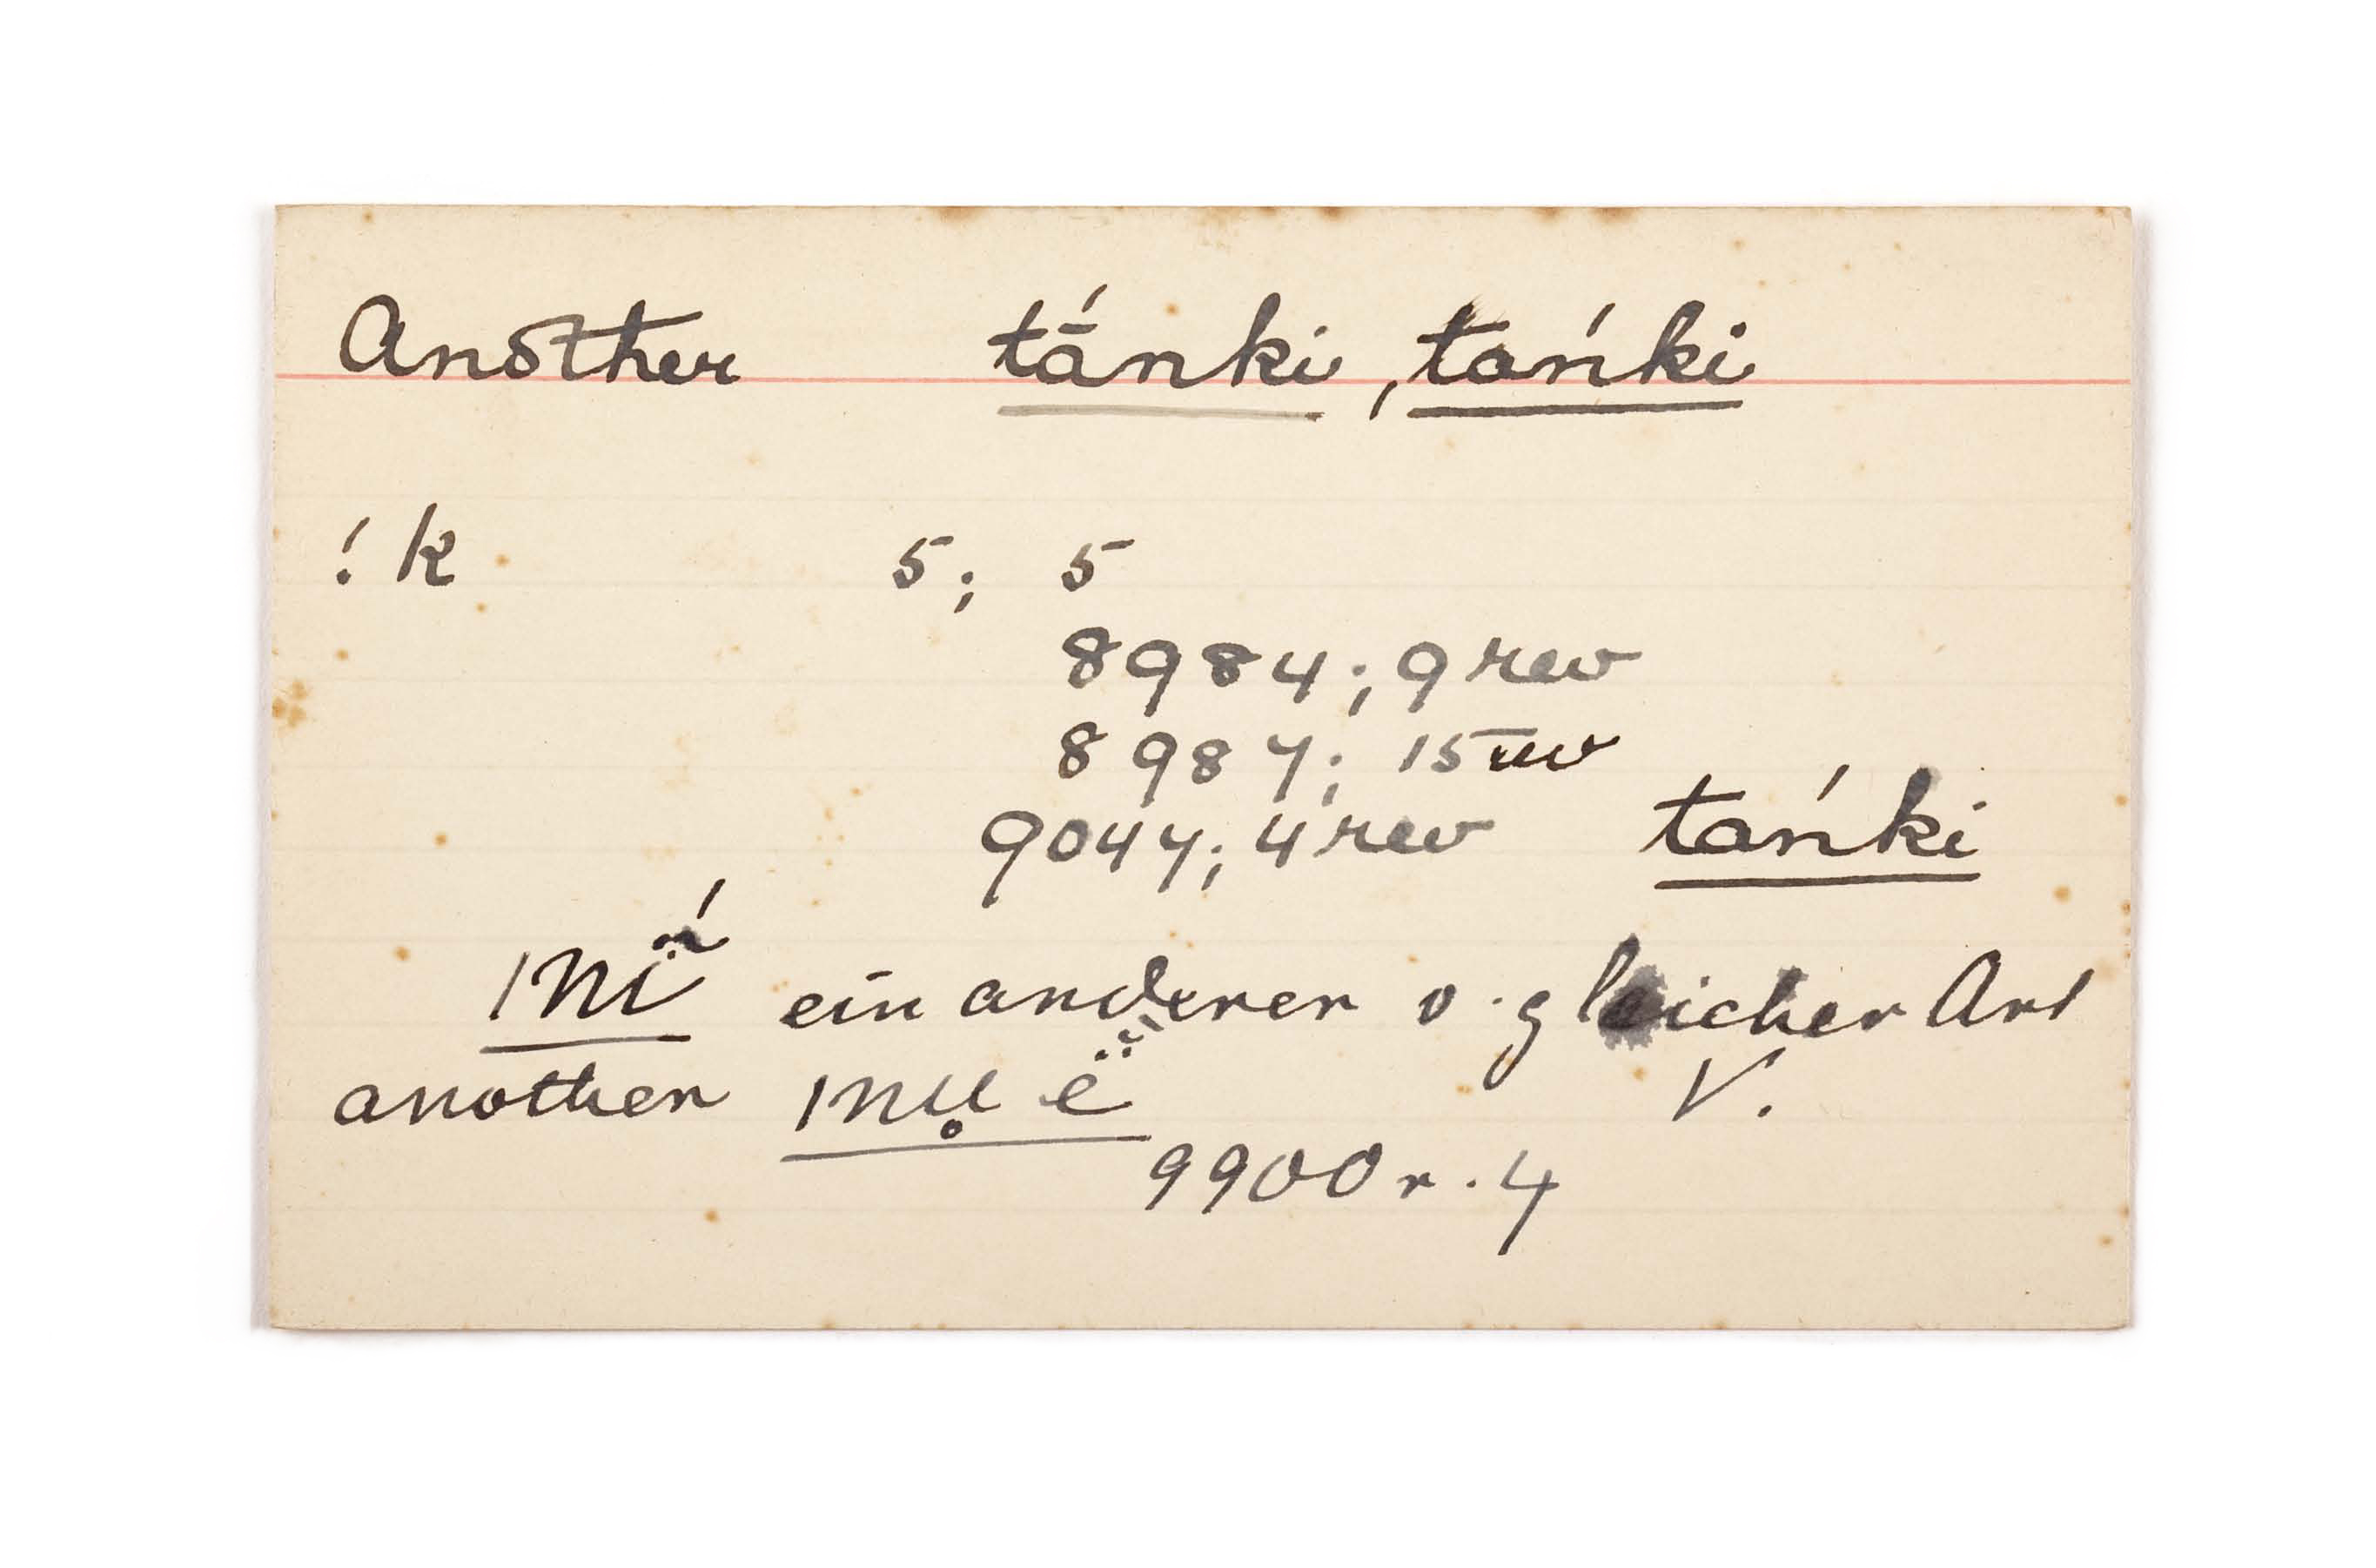 Another tā́nki, tańki
! k 5; 5
8984; 9 rev
8987; 15 rev
9047; 4 rev tańki
ein anderer v. gleicher Art
another V.
9900 r. 4